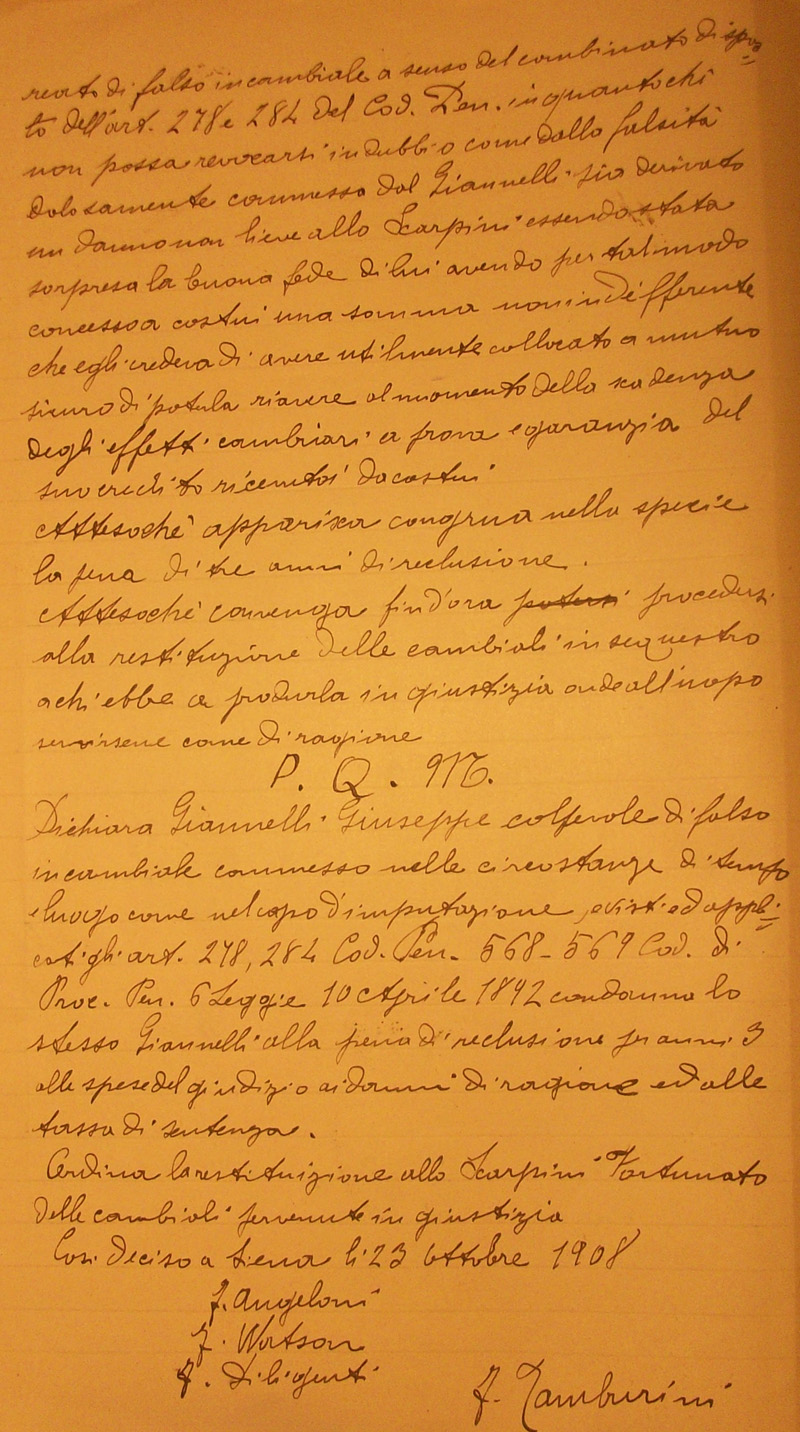 reato di falso in cambiale a senso del combinato dispo=
sto dell'art. 278 e 284 del Cod. Pen. in quantochè
non possa revocarsi in dubbio come dalla falsità
dolosamente commessa dal Giannelli sia derivato
un danno non lieve allo Scarpini essendo stata
sorpresa la buona fede di lui avendo per tal modo
concesso a costui una somma non indifferente
che egli credeva di avere utilmente collocato a mutuo
sicuro di poterla riavere al momento della scadenza
degli effetti cambiari a prova e garanzia del
suo credito da costui
Attesochè apparisca congrua nella specie
la pena di tre anni di reclusione.
Attesochè convenga fin d'ora potersi procedersi
alla restituzione delle cambiali in sequestro
a chi ebbe a produrla in giustizia onde all'uopo
servirsene come di ragione
P. Q. M.
Dichiara Giannelli Giuseppe colpevole di falso
in cambiale commesso nelle circostanze di tempo
e luogo come nel capo d'imputazione, e visti ed appli=
cati gli art. 278, 284 Cod. Pen. 568-569 Cod. di
Proc. Pen. 6 Legge 10 Aprile 1892 condanna lo
stesso Giannelli alla pena di reclusione per anni 3
alle spese del giudizio ai danni di ragione ed alle
tassa di sentenza.
Ordina la restituizione allo Scarpini Fortunato
delle cambiali pervenute in giustizia
Così deciso a Siena li 23 Ottobre 1908
F. Angeloni
F. Watson
F. Diligenti
F. Tamburini